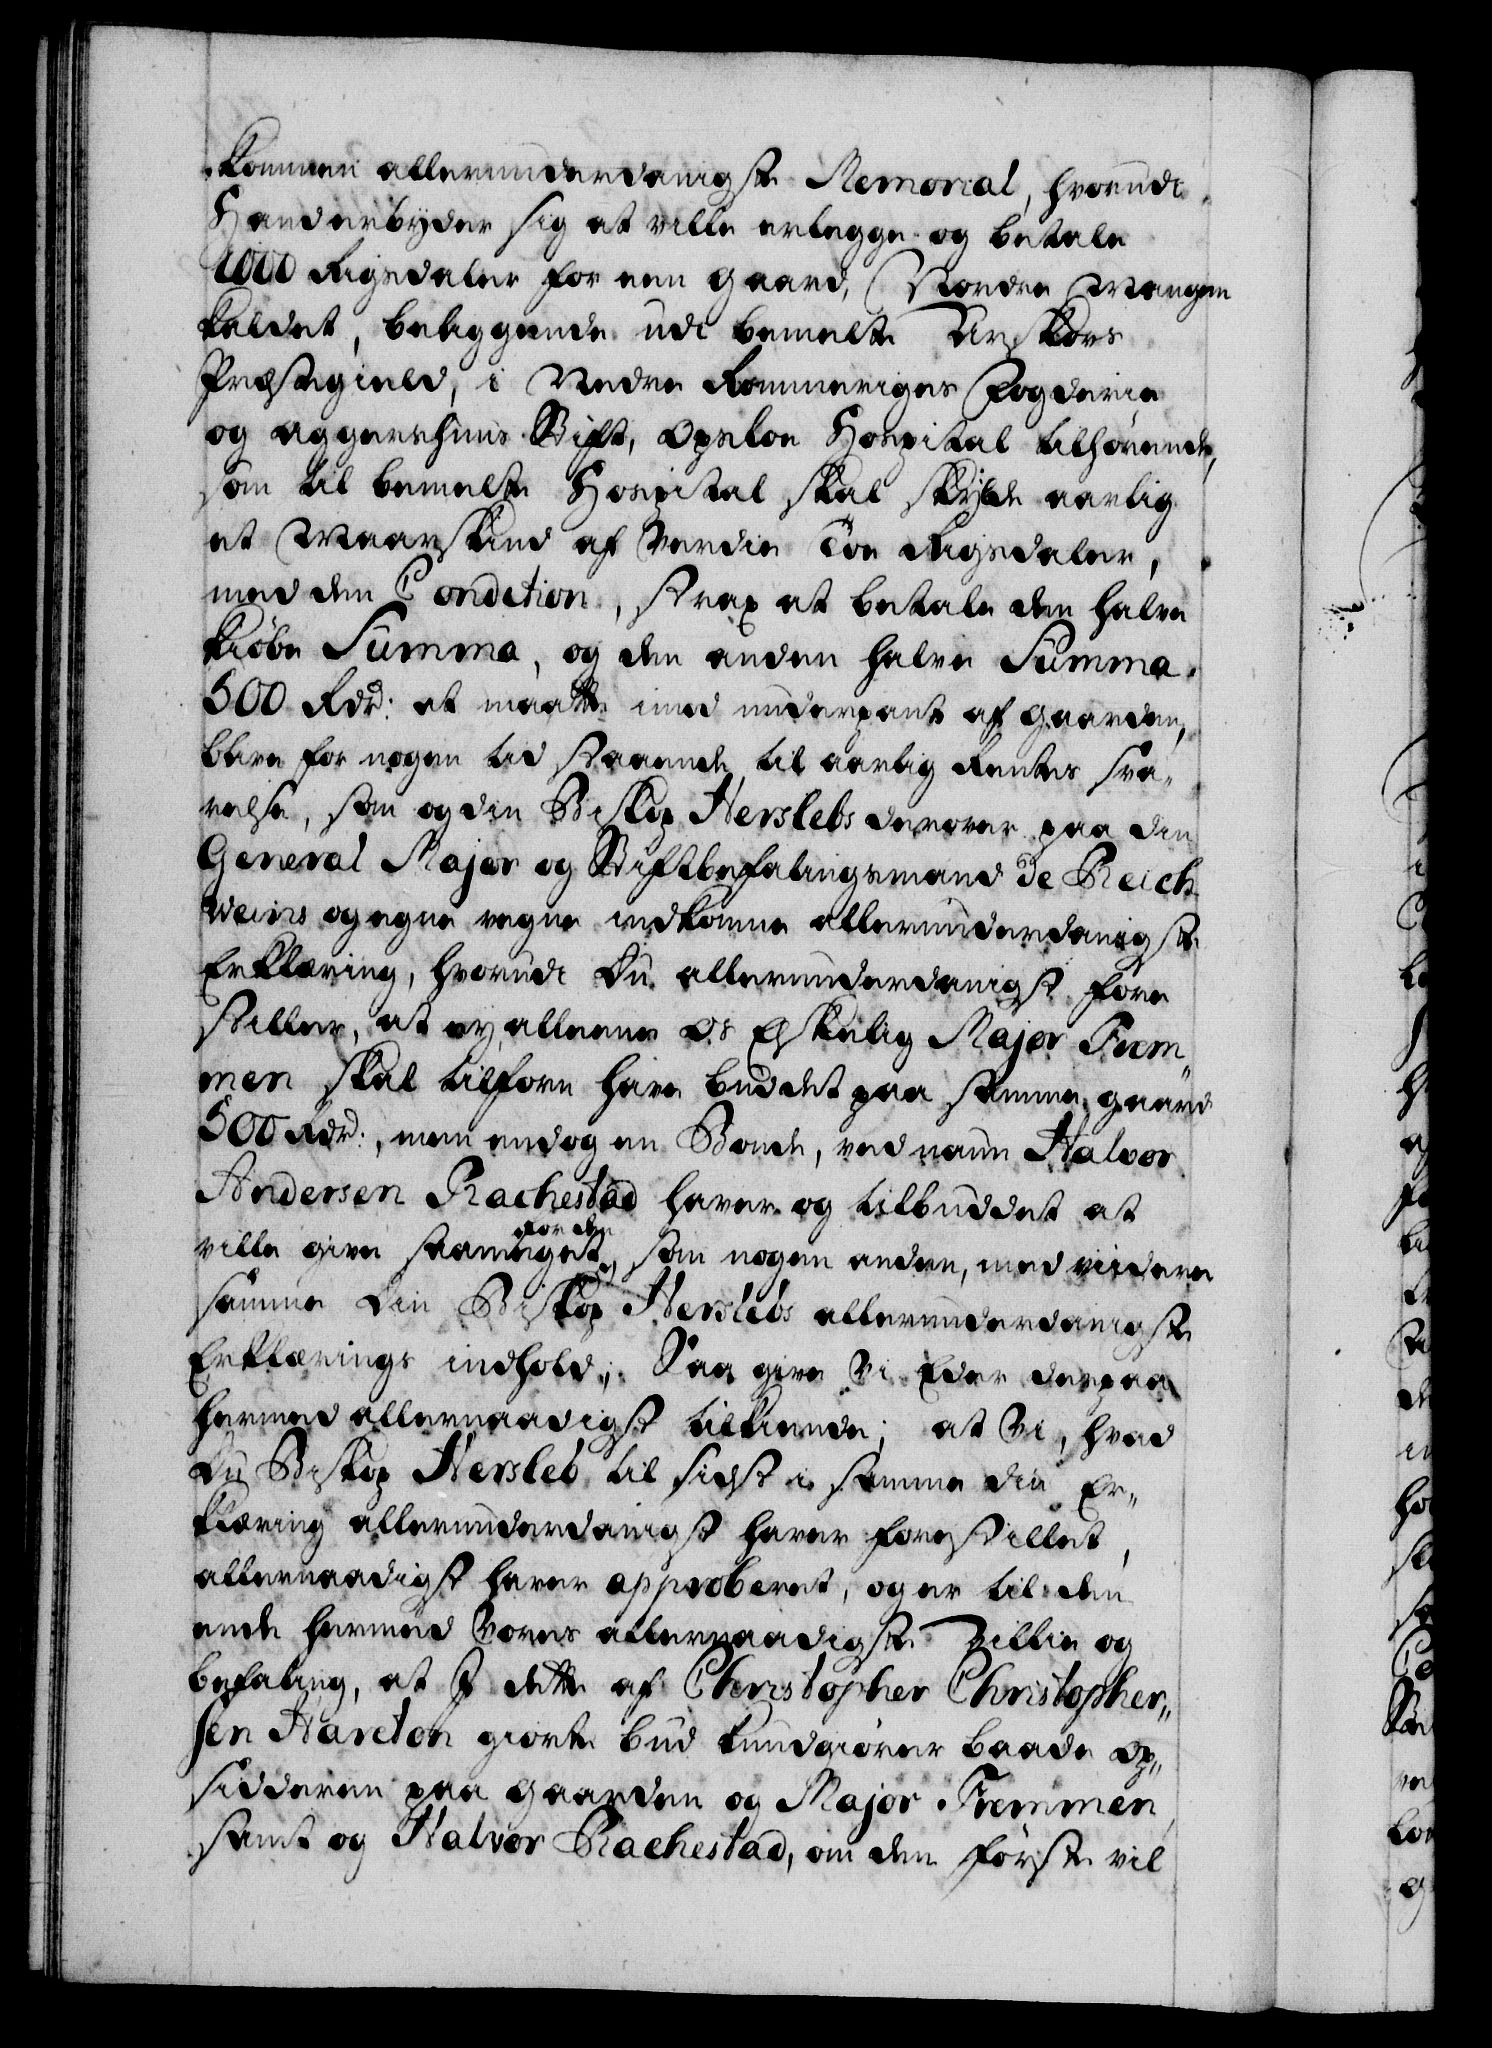 kommen allerunderdanigste Memorial, hvorudi
Hand erbyder sig at ville erlegge og betale
1000 Rigsdaler for een gaard, Nordre Mangen
kaldet, beliggende udi bemelte Urskovs
Præstegield, i Nedre Rommeriges Fogderie
og Aggershuus Stift, Opsloe Hospital tilhørende,
som til bemelte Hospital skal skylde aarlig
et Maarskind af Verdie Toe Rigsdaler,
med den Condition, strax at betale den halve
kiøbe Summa, og den anden halve Summa
500 Rdr: at maatte imod underpant af gaarden,
blive for nogen tid staaende til aarlig Rentes sva-
relse, som og din Biskop Herslebs derover paa din
General Major og Stiftbefalingsmand De Reich
weins og egne vegne indkomne allerunderdanigste
Erklæring, hvorudi Du allerunderdanigst fore
stiller, at ey alleene Os Elskelig Major From-
men skal tilforn have buddet paa samme gaard
500 Rdr:, men endog en Bonde, ved navn Halvor
Andersen Rachestad haver og tilbuddet at
ville give saameget for den, som nogen anden, med viidere
samme Din Biskop Herslebs allerunderdanigste
Erklærings indhold; Saa give Vi Eder derpaa
hermed allernaadigst tilkiende; at Vi, hvad
Du Biskop Hersleb til sidst i samme din Er-
klæring allerunderdanigst haver forestillet,
allernaadigst haver approberet, og er til den
ende hermed Vores allernaadigste Villie og
befaling, at I dette af Christopher Christopher-
sen Hareton giorte bud kundgiører baade Op-
sidderen paa gaarden og Major Frommen,
samt og Halvor Rachestad, om den første vil